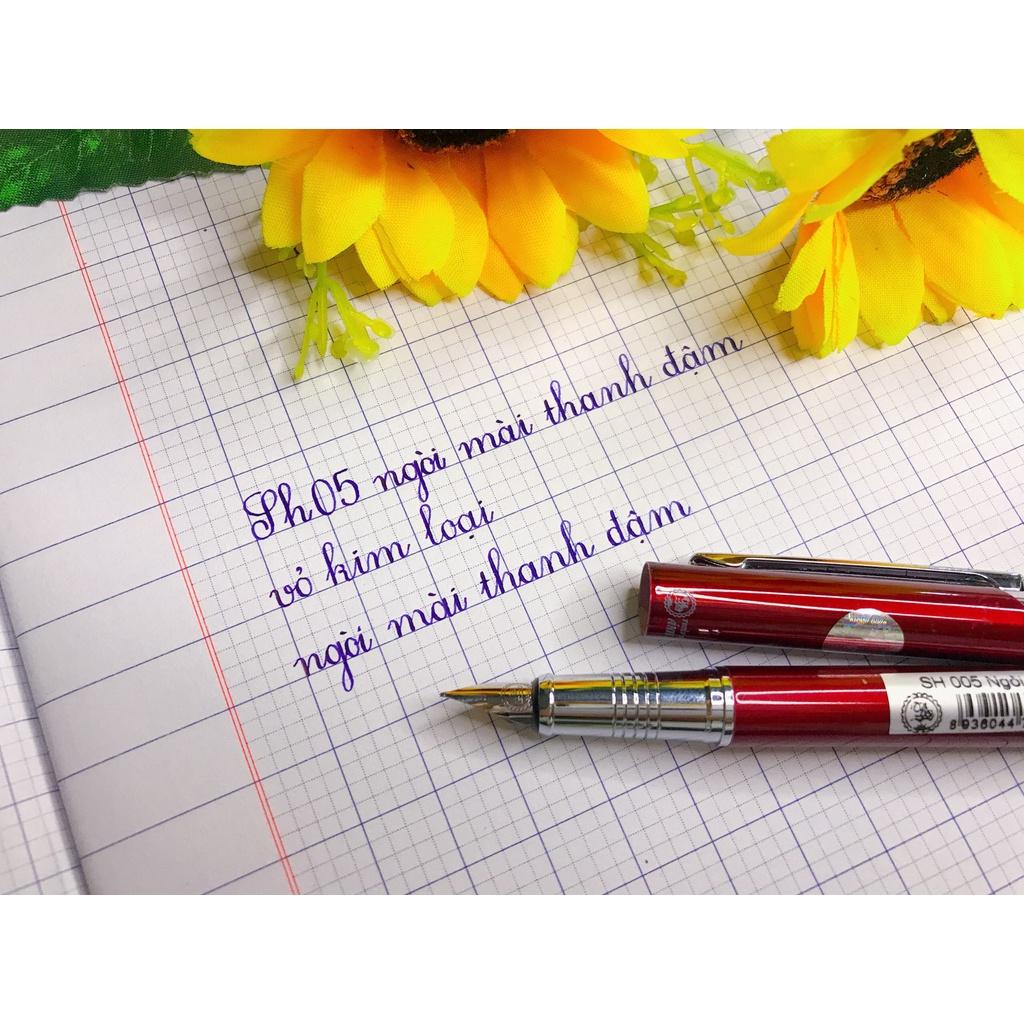 Sh05 ngòi mài thanh đậm
vỏ kim loại
ngòi mài thanh đậm
SH 005 Ngòi
8 936044